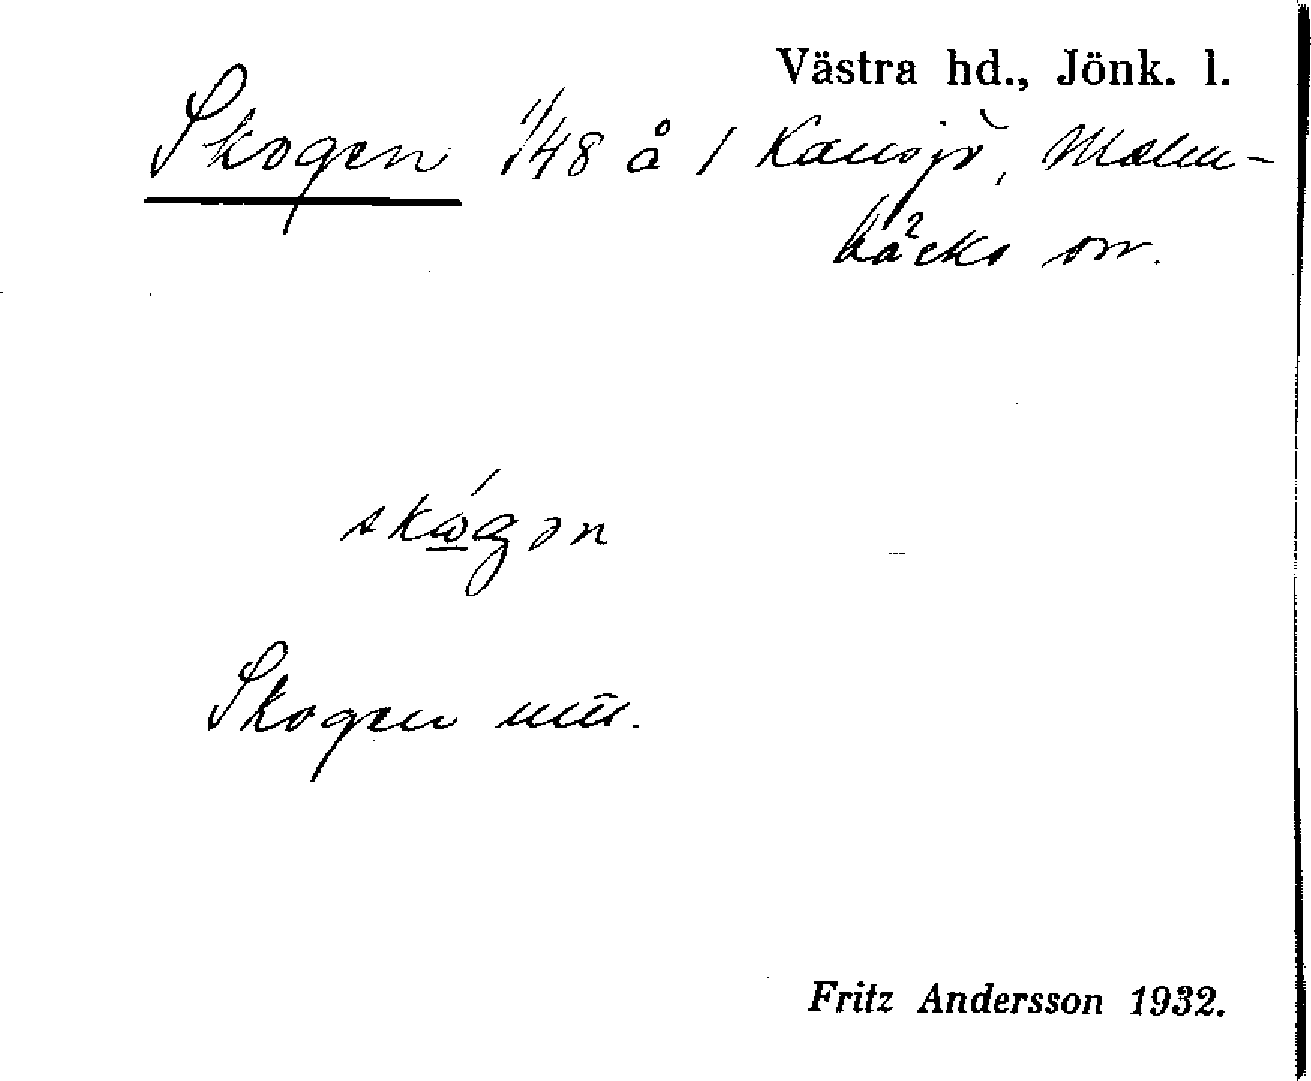 Västra hd., Jönk. l.
Skogen 1/48 å 1 Kansjö, Malm-
bäcks sn.
skωgən
Skogen mtl.
Fritz Andersson 1932.